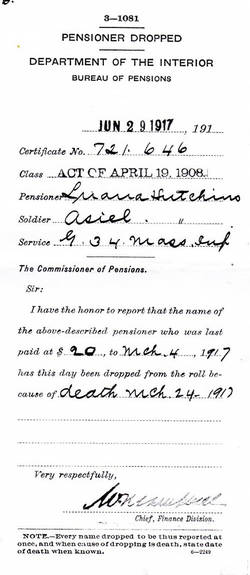 3—1081
PENSIONER DROPPED
DEPARTMENT OF THE INTERIOR
BUREAU OF PENSIONS
JUN 29 1917, 191
Certificate No. 721.646
Class ACT OF APRIL 19, 1908.
Pensioner Luana Hutchins
Soldier Asiel "
Service G. 34 Mass Inf
The Commissioner of Pensions.
Sir:
I have the honor to report that the name of
the above-described pensioner who was last
paid at $ 20, to Mch. 4, 1917
has this day been dropped from the roll be-
cause of death Mch 24-1917
Very respectfully,
Chief, Finance Division.
NOTE.—Every name dropped to be thus reported at
once, and when cause of dropping is death, state date
of death when known.
6—2249